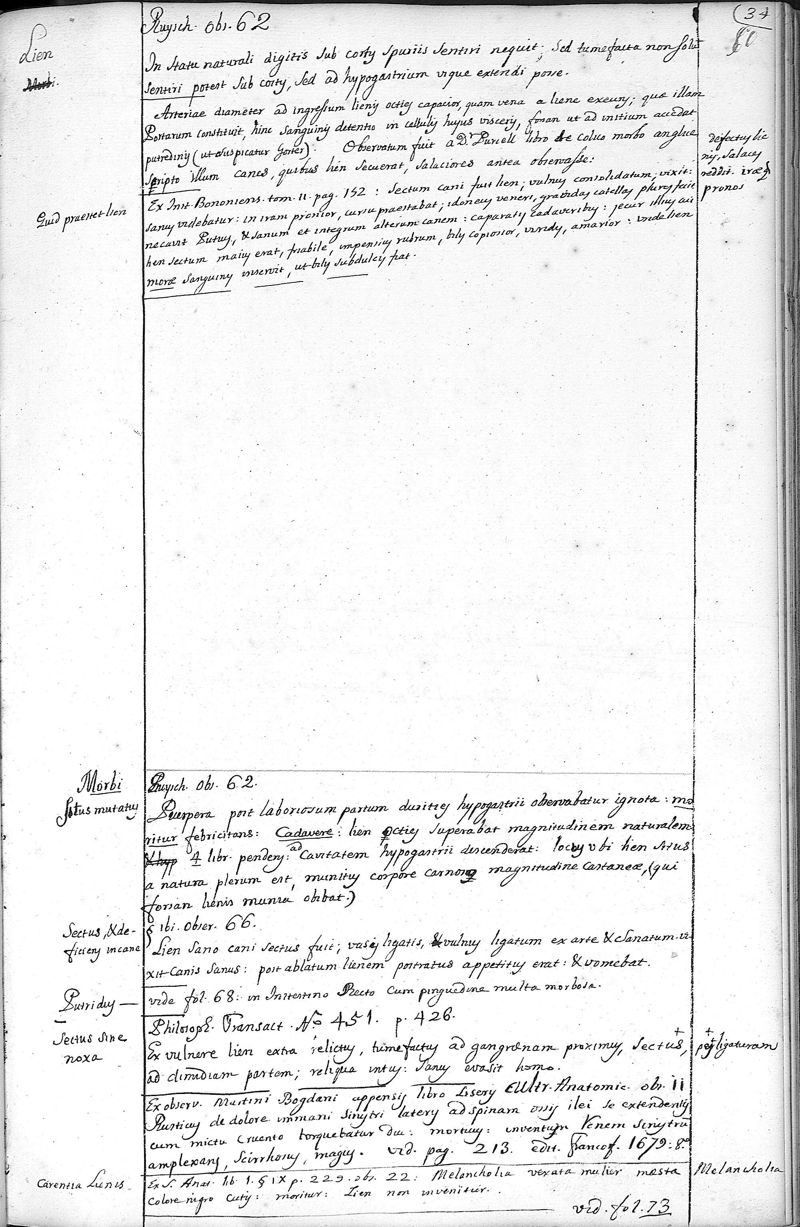 (34
60
Lien
Morbi.
Ruysch. obs. 62
In statu naturali digitis sub costis spuriis sentiri nequit; sed tumefacta non solū
sentiri potest sub costis, sed ad hypogastrium usque extendi posse.
Arteriae diameter ad ingressum lienis octies capacior, quam vena a liene exeuns; quae illam
Portarum constituit, hinc sanguinis detentio in cellulis hujus visceris, forsan ut ad initium accedat
putredinis (ut suspicatur Gorter). Observatum fuit a Dr Purcell libro de Colico morbo anglice
scripto illum canes, quibus lien secuerat, salaciores antea observasse:
defectus lie
nis, salaces
reddit. iraeq
pronos
Quid praestet lien
Ex Inst. Bononiens. tom. 11. pag. 152: sectum cani fuit lien; vulnus consolidatum; vixit:
sanus videbatur: in iram pronior, cursu praestabat; idoneus veneri, gravidas catellas plures fecit
necavit Putus, & sanum et integrum alterum canem: comparatis cadaveribus: jecur illius cui
lien sectum majus erat, friabile, impensius rubrum, bilis copiosior, viridis, amarior: unde lien
morae sanguinis inservit, ut bilis subdulcis fiat.
Morbi
situs mutatus
Ruysch. obs. 62.
Puerpera post laboriosum partum durities hypogastrii observabatur ignota: mo
ritur febricitans: Cadavere: lien octies superabat magnitudinem naturalem
& hyp 4 libr. pendens: ad Cavitatem hypogastrii descenderat: locus ubi lien situs
a natura plerum est, munitus corpore carnoso magnitudine castaneae, (qui
forsan lienis munia obibat.)
Sectus, & de-
ficiens in cane
§ ibi. obser. 66.
Lien sano cani sectus fuit; vasis ligatis, & vulnus ligatum ex arte & sanatum. vi-
xit canis sanus: post ablatum lienem postratus appetitus erat: & vomebat.
Putridus —
vide fol. 68: in Intestino Recto cum pinguedine multa morbosa.
Sectus sine
noxa
Philosoph. Transact. No 451. p. 426.
Ex vulnere lien extra relictus, tumefactus ad gangraenam proximus, sectus,
per ligaturam
ad dimidiam partem; reliqua intus: sanus evasit homo.
Ex observ. Martini Bogdani appensis libro Liseri Cultr. Anatomic. obs. 11
Rusticus de dolore immani sinistri lateris ad spinam ossis ilei se extendentis
cum mictu cruento torquebatur diu: mortuus: inventum Renem sinistrū
amplexans, scirrhosus, magnus. vid. pag. 213. edit. Francof. 1679: 8o
Carentia Lienis
Ex S. Anat. lib. 1. § IX p. 229. obs. 22: Melancholia vexata mulier maesta
Melancholia
colore nigro cutis: moritur: Lien non invenitur.
vid. fol. 73